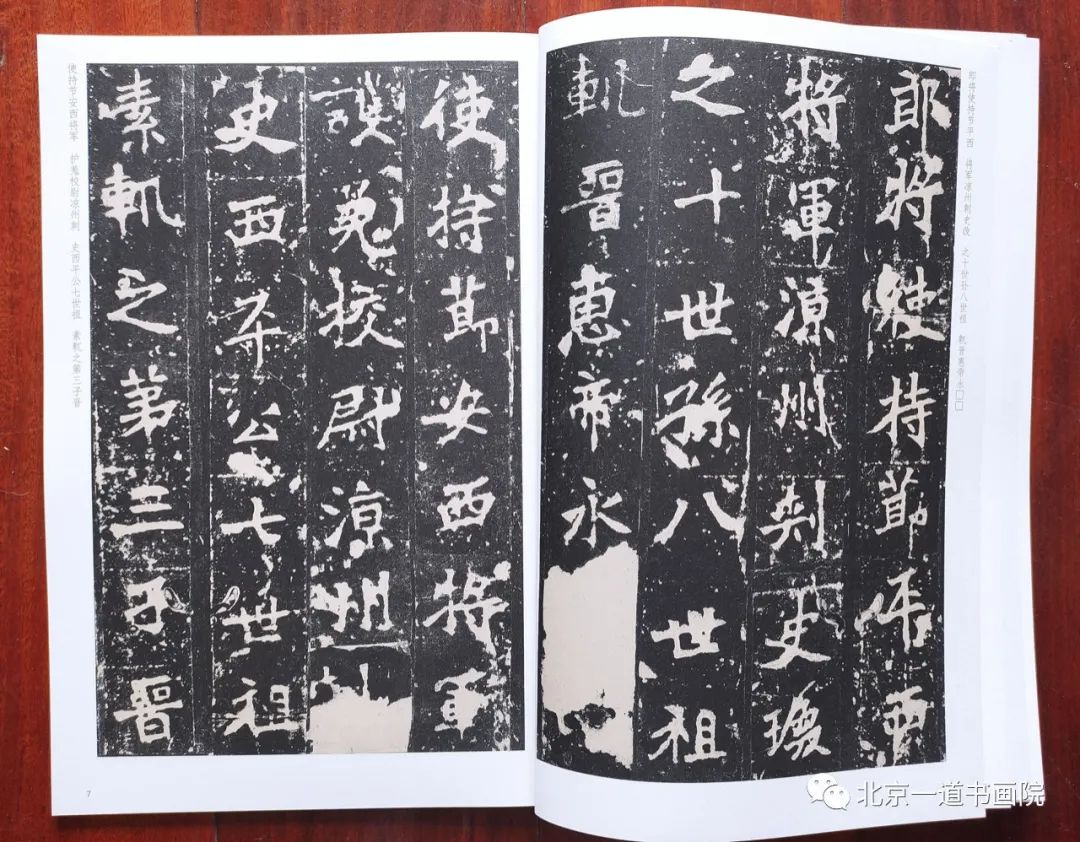 郎将使持节平西 将军凉州刺史 之十世孙八世祖 軌晋惠帝永□□
郎將使持節平西
將軍涼州刺史瓌
之十世孫八世祖
軌晉惠帝永
使持節安西將軍
護羌校尉涼州
史西平公七世祖
素軌之第三子晉
使持节安西将军 护羌校尉凉州刺 史西平公七世祖 素軌之第三子晋
7
北京一道书画院